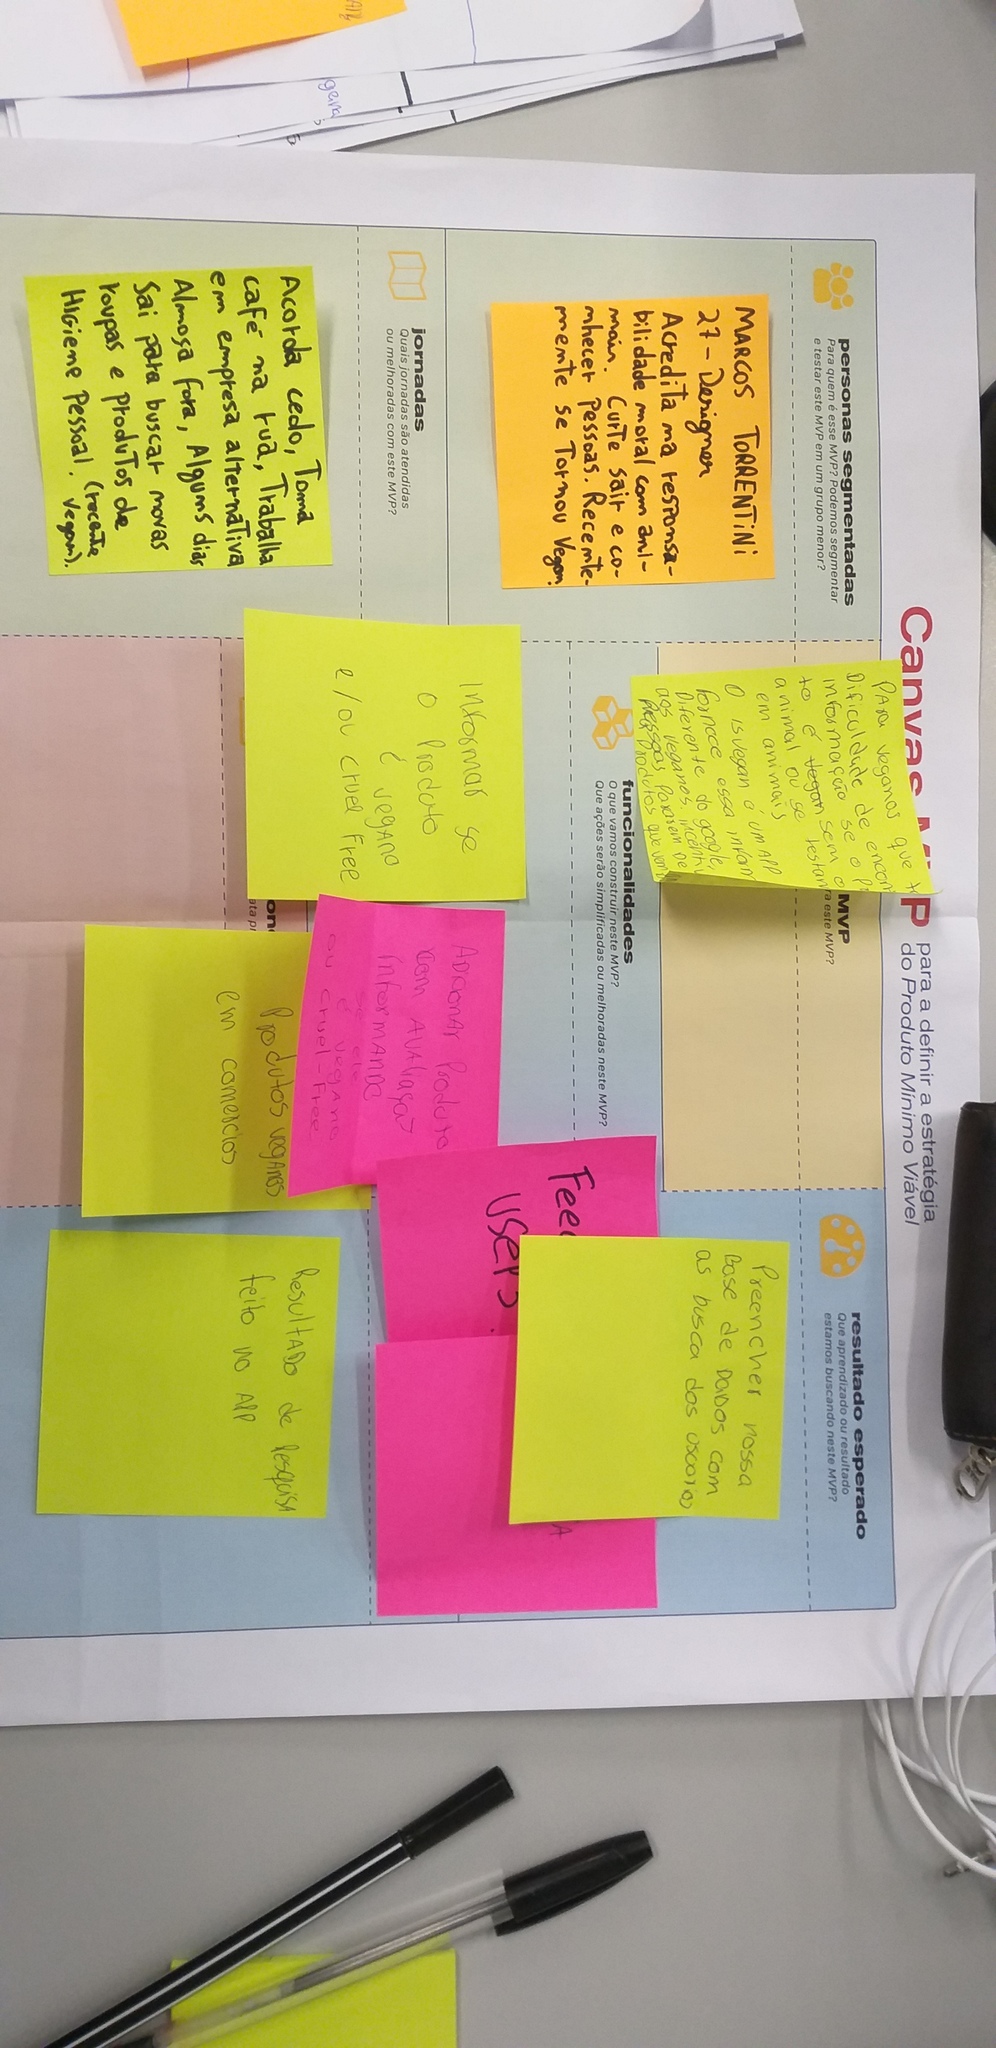 Canvas M P para a definir a estratégia
do Produto Mínimo Viável
personas segmentadas
Para quem é esse MVP? Podemos segmentar
e testar este MVP em um grupo menor?
MARCOS TORRENTINI
27 - Designer
Acredita na responsa-
bilidade moral com ani-
mais. Curte sair e co-
nhecer Pessoas. Recente-
mente se Tornou Vegan.
jornadas
Quais jornadas são atendidas
ou melhoradas com este MVP?
Acorda cedo, Toma
café na rua, Trabalha
em empresa alternativa
Almosa fora, Alguns dias
Sai para buscar novas
roupas e produtos de
HIGIEME PESSOAL. (recente
vegan).
MVP
ra este MVP?
PARA veganos que t
Dificuldade de encon
informação se o P
to é vegan sem o
animal ou se testan
em animais
O isvegan é um APP
fornece essa inform
Diferente do google,
aos veganos incenti
pessoas pararem de
produtos que
funcionalidades
O que vamos construir neste MVP?
Que ações serão simplificadas ou melhoradas neste MVP?
INFORMAR se
o Produto
é vegano
e/ou cruel free
ADICIONAR Produto
com AVALIAÇÃO
INFORMANDO
se ele
é vegano
ou cruel-Free
Feed
USERS.
A
on
ata p
Produtos veganos
em comercios
resultado esperado
Que aprendizado ou resultado
estamos buscando neste MVP?
Preencher nossa
Base de DADOS com
as busca dos usorios
Resultado de Pesquisa
feito no APP
gera